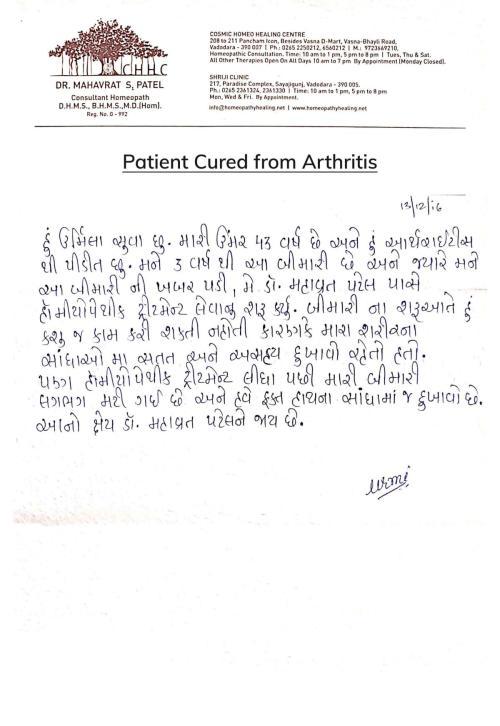 COSMIC HOMEO HEALING CENTRE
208 to 211 Pancham Icon, Besides Vasna D-Mart, Vasna-Bhayli Road,
Vadodara - 390 007 | Ph : 0265 2250212, 6560212 | M.: 9723669210,
Homeopathic Consultation. Time: 10 am to 1 pm, 5 pm to 8 pm | Tues, Thu & Sat.
All Other Therapies Open On All Days 10 am to 7 pm By Appointment (Monday Closed).
CHHC
DR. MAHAVRAT S. PATEL
Consultant Homeopath
D.H.M.S., B.H.M.S.,M.D.(Hom).
Reg. No. G - 992
SHRIJI CLINIC
217, Paradise Complex, Sayajigunj, Vadodara - 390 005.
Ph.: 0265 2361324, 2361330 | Time: 10 am to 1 pm, 5 pm to 8 pm
Mon, Wed & Fri. By Appointment.
info@homeopathyhealing.net | www.homeopathyhealing.net
Patient Cured from Arthritis
13/12/16
હું ઉર્મિલા સુવા છુ. મારી ઉંમર ૫૩ વર્ષ છે અને હું આર્થરાઈટીસ
થી પીડીત છુ. મને ૩ વર્ષ થી આ બીમારી છે અને જ્યારે મને
આ બીમારી ની ખબર પડી, મે ડૉ. મહાવ્રત પટેલ પાસે
હોમીયોપેથીક ટ્રીટમેન્ટ લેવાનુ શરૂ કર્યુ. બીમારી ના શરૂઆતે હું
કશુ જ કામ કરી શકતી નહોતી કારણકે મારા શરીરના
સાંધાઓ મા સતત અને અસહ્ય દુખાવો રહેતો હતો.
પણ હોમીયોપેથીક ટ્રીટમેન્ટ લીધા પછી મારી બીમારી
લગભગ મટી ગઈ છે અને હવે ફક્ત હાથના સાંધામાં જ દુખાવો છે.
આનો શ્રેય ડૉ. મહાવ્રત પટેલને જાય છે.
urmi